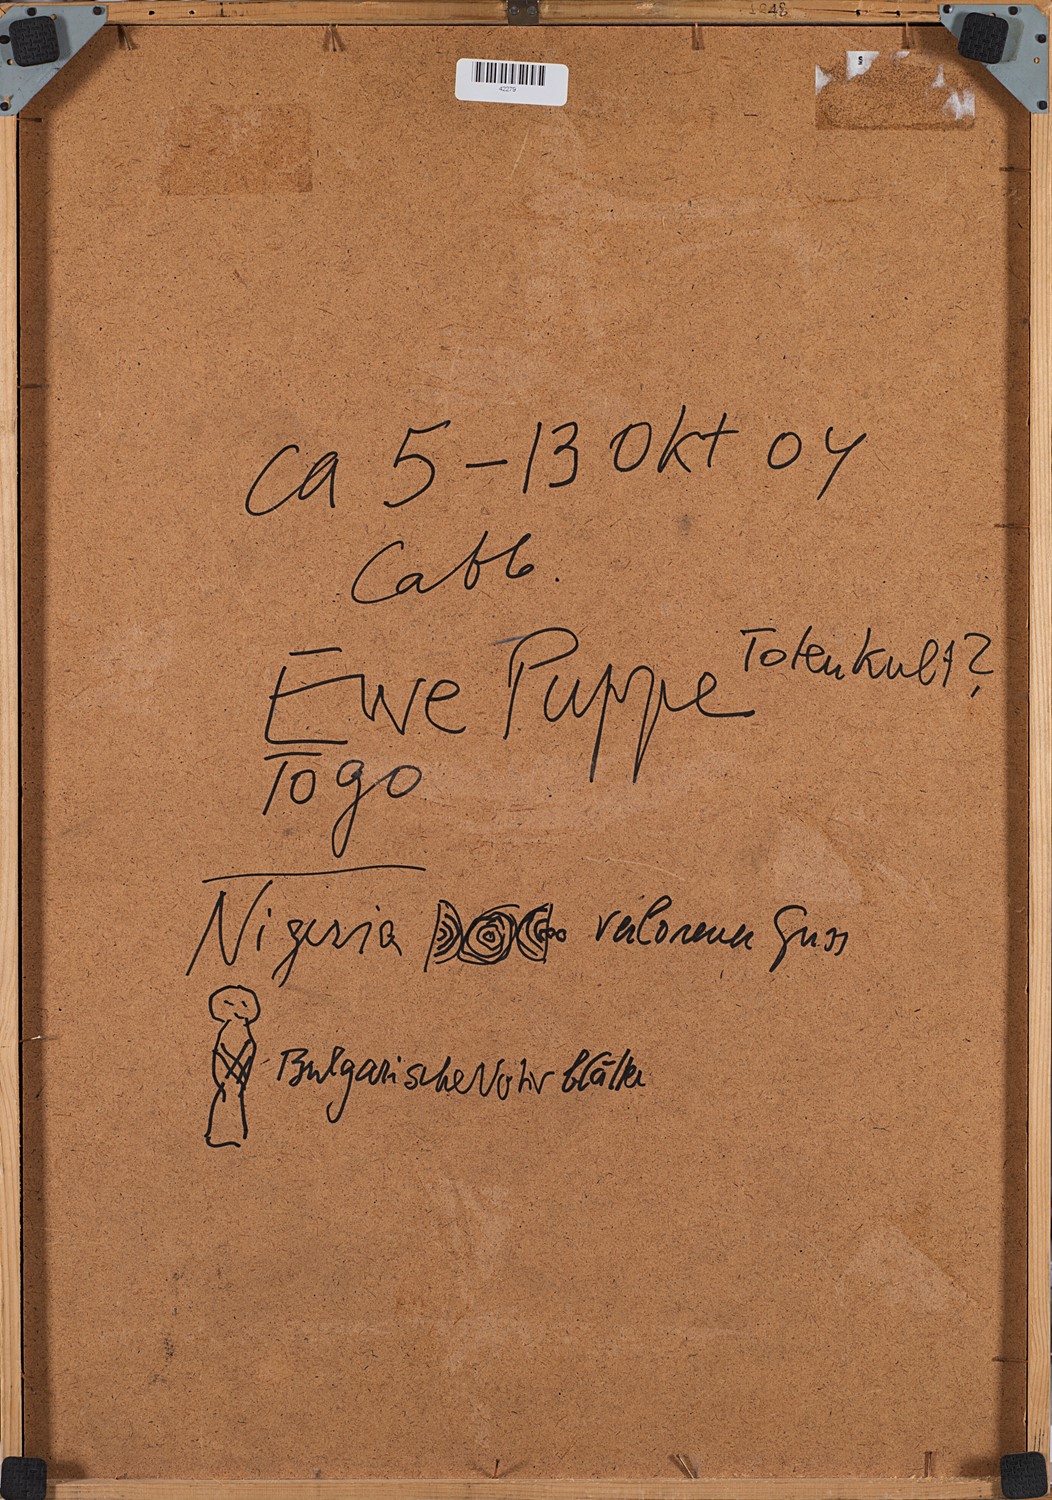 1048
42279
ca 5-13 Okt 04
Cabb.
Ewe Puppe Totenkult?
Togo
Nigeria verlorener Guss
Bulgarische Votivblätter